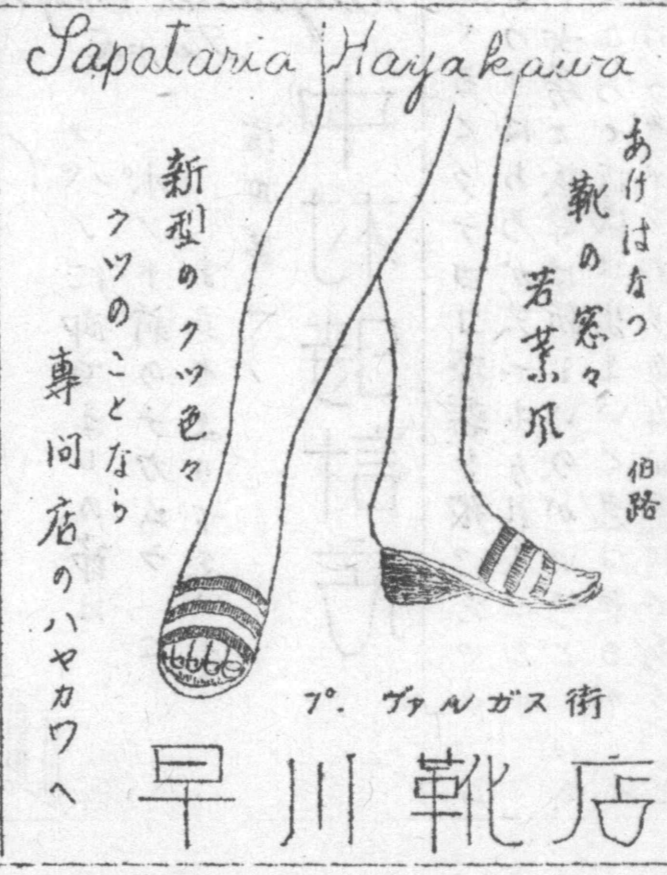 Sapataria Hayakawa
あけはなつ
靴の窓々
若葉風
伯路
新型のクツ色々
クツのことなら
専问店のハヤカワへ
プ. ヴァルガス街
早川靴店